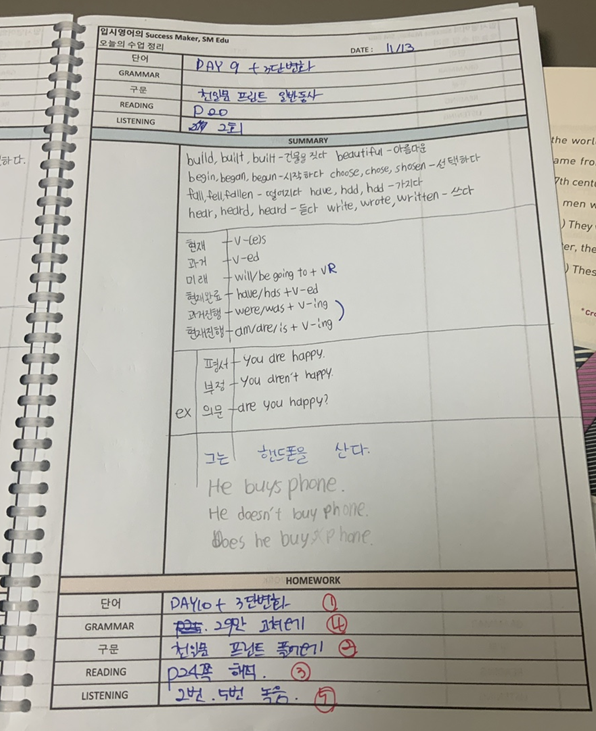 입시영어의 Success Maker, SM Edu
오늘의 수업 정리
DATE : 11/13
단어 DAY 9 + 3단변화
GRAMMAR
구문 천일문 프린트 일반동사
READING
LISTENING 2회
SUMMARY
build, built, built - 건물을 짓다 beautiful - 아름다운
begin, began, begun - 시작하다 choose, chose, shosen - 선택하다
fall, fell, fallen - 떨어지다 have, had, had - 가지다
hear, heard, heard - 듣다 write, wrote, written - 쓰다
현재 - V-(e)s
과거 - V-ed
미래 - will/be going to + VR
현재완료 - have/has + V-ed
과거진행 - were/was + V-ing
현재진행 - am/are/is + V-ing
평서 - you are happy.
부정 - you aren't happy.
ex 의문 - are you happy?
그는 핸드폰을 산다.
He buys phone.
He doesn't buy phone.
Does he buy phone.
HOMEWORK
단어 DAY10 + 3단변화 ①
GRAMMAR 29만 고쳐오기 ④
구문 천일문 프린트 풀어오기 ②
READING p24쪽 해석. ③
LISTENING 2번. 5번 녹음. ⑤
하다.
the worl
ame fro
7th cent
men w
) They
er, the
) Thes
*cr